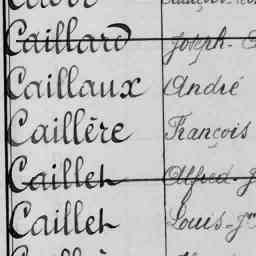 Caillard Joseph-
Caillaux André
Caillère François
Caillet Alfred-J
Caillet Louis-Jn